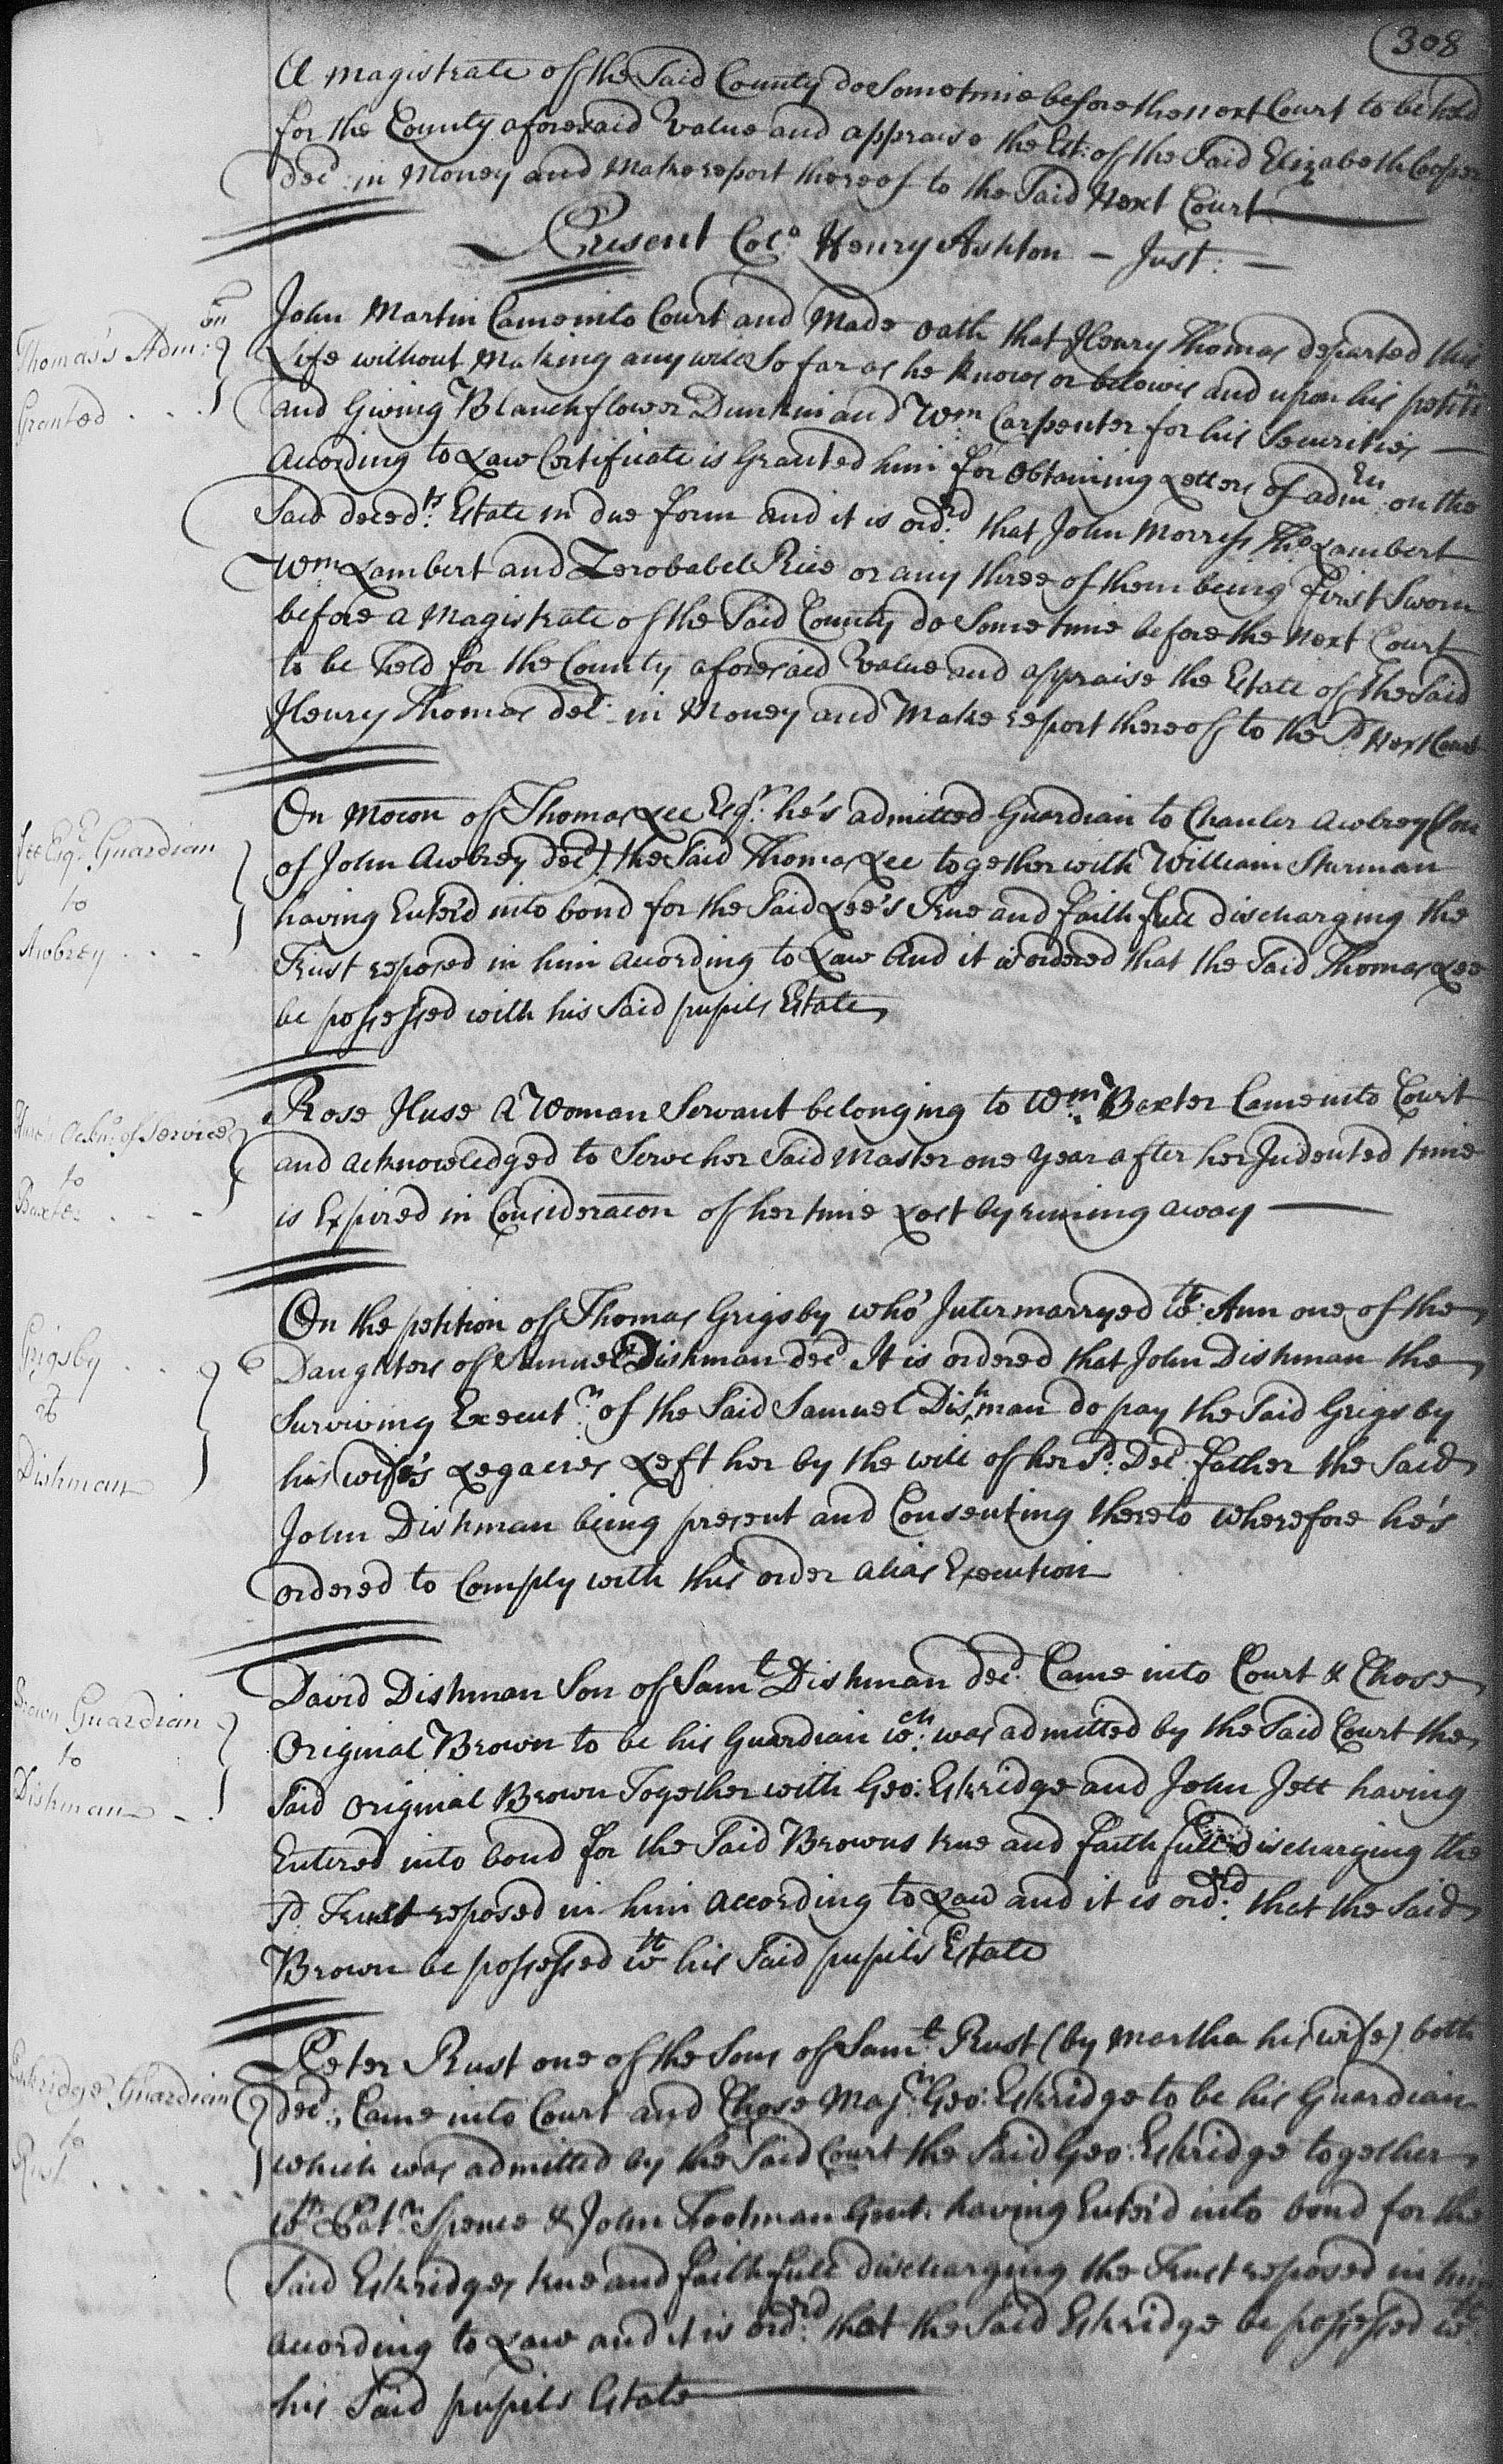 308
A magistrate of the Said County do Sometime before the next Court to be held
for the County aforesaid Value and appraise the Est: of the Said Elizabeth Cooper
decd: in Money and Make report thereof to the Said Next Court
Present Colo: Henry Ashton - Just: -
Thomas's Adm:on
Granted . . .
John Martin Came into Court and Made oath that Henry Thomas departed this
Life without Making any will So far as he knows or beleivs and upon his petitn
and Giving Blanchflower Dunkin and Wm: Carpenter for his Securities
Acording to Law Certificate is Granted him for Obtaining Letters of adm:en on the
Said deceds: Estate in due form and it is ord:rd that John Morriss Tho Lambert
Wm Lambert and Zerobabel Rice or any three of them being first Sworn
before a Magistrate of the Said County do Sometime before the Next Court
to be held for the County aforesaid Value and appraise the Estate of the Said
Henry Thomas decd: in Money and Make report thereof to the Sd: Next Court
Lee Esqr: Guardian
to
Awbrey . . .
On Mocon of Thomas Lee Esqr: he's admitted Guardian to Chanler Awbrey (Son
of John Awbrey decd:) the Said Thomas Lee together with William Sturman
having Enter'd into bond for the Said Lee's True and faithfull discharging the
Trust reposed in him acording to Law And it is ordered that the Said Thomas Lee
be possessed with his Said pupils Estate
Ackn: of Service
to
Baxter . . .
Rose Huse a Woman Servant belonging to Wm: Baxter Came into Court
and acknowledged to Serve her Said Master one year after her Indented time
is Expired in Consideracon of her time Lost by runing away
Grigsby . .
vs
Dishman
On the petition of Thomas Grigsby who Intermarryed wth: Ann one of the
Daughters of Samuel Dishman decd It is ordered that John Dishman the
Surviving Execut:r of the Said Samuel Dishman do pay the Said Grigsby
his wife's Legacies Left her by the will of her Sd: Decd: father the Said
John Dishman being present and Consenting thereto Wherefore he's
ordered to Comply with this order alias Execution
Brown Guardian
to
Dishman - .
David Dishman Son of Saml Dishman decd: Came into Court & Chose
Original Brown to be his Guardian wch: was admitted by the Said Court the
Said Original Brown Together with Geo: Eskridge and John Jett having
Entered into bond for the Said Browns true and faithfull discharging the
Sd. Trust reposed in him according to Law and it is ord:rd that the Said
Brown be possessed wth his Said pupils Estate
Eskridge Guardian
to
Rust . . . . . .
Peter Rust one of the Sons of Saml: Rust (by Martha his wife) both
decd:, Came into Court and Chose Majr: Geo: Eskridge to be his Guardian
which was admitted by the Said Court the Said Geo: Eskridge together
wth Patr: Spence & John Footman Gent: having Enter'd into bond for the
Said Eskridges true and faithfull discharging the Trust reposed in him
according to Law and it is ord:rd that the Said Eskridge be possessed wth:
his Said pupils Estate